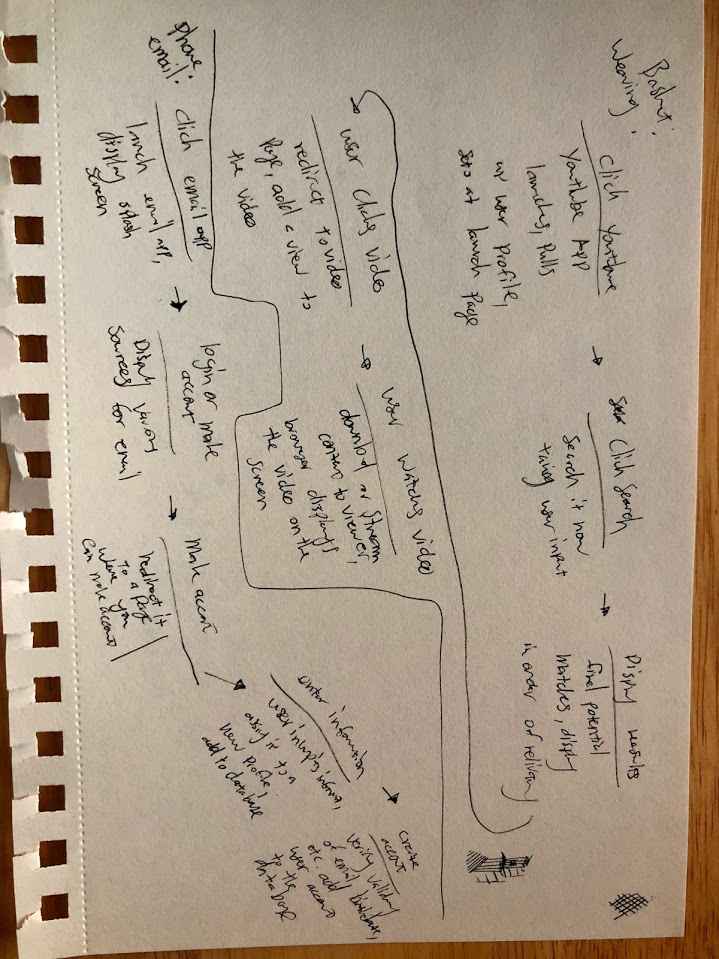 Basket
Weaving:
Click Youtube
Youtube App
launches, Pulls
up user profile,
sets at launch page
Click Search
Search it now
taking user input
Display results
find potential
matches, display
in order of
user clicks video
redirect to video
Page, add a view to
the video
user watches video
download or stream
content to viewer,
browser displays
the video on the
screen
phone:
email:
Click email app
launch email app,
display splash
screen
login or make
account
Display various
sources for email
Make account
redirect it
to a page
where you
can make account
enter information
user inputs
assign it to a
new profile,
add to database
create
account
verify validity
of email, birthdate,
etc. add
user account
to the
database